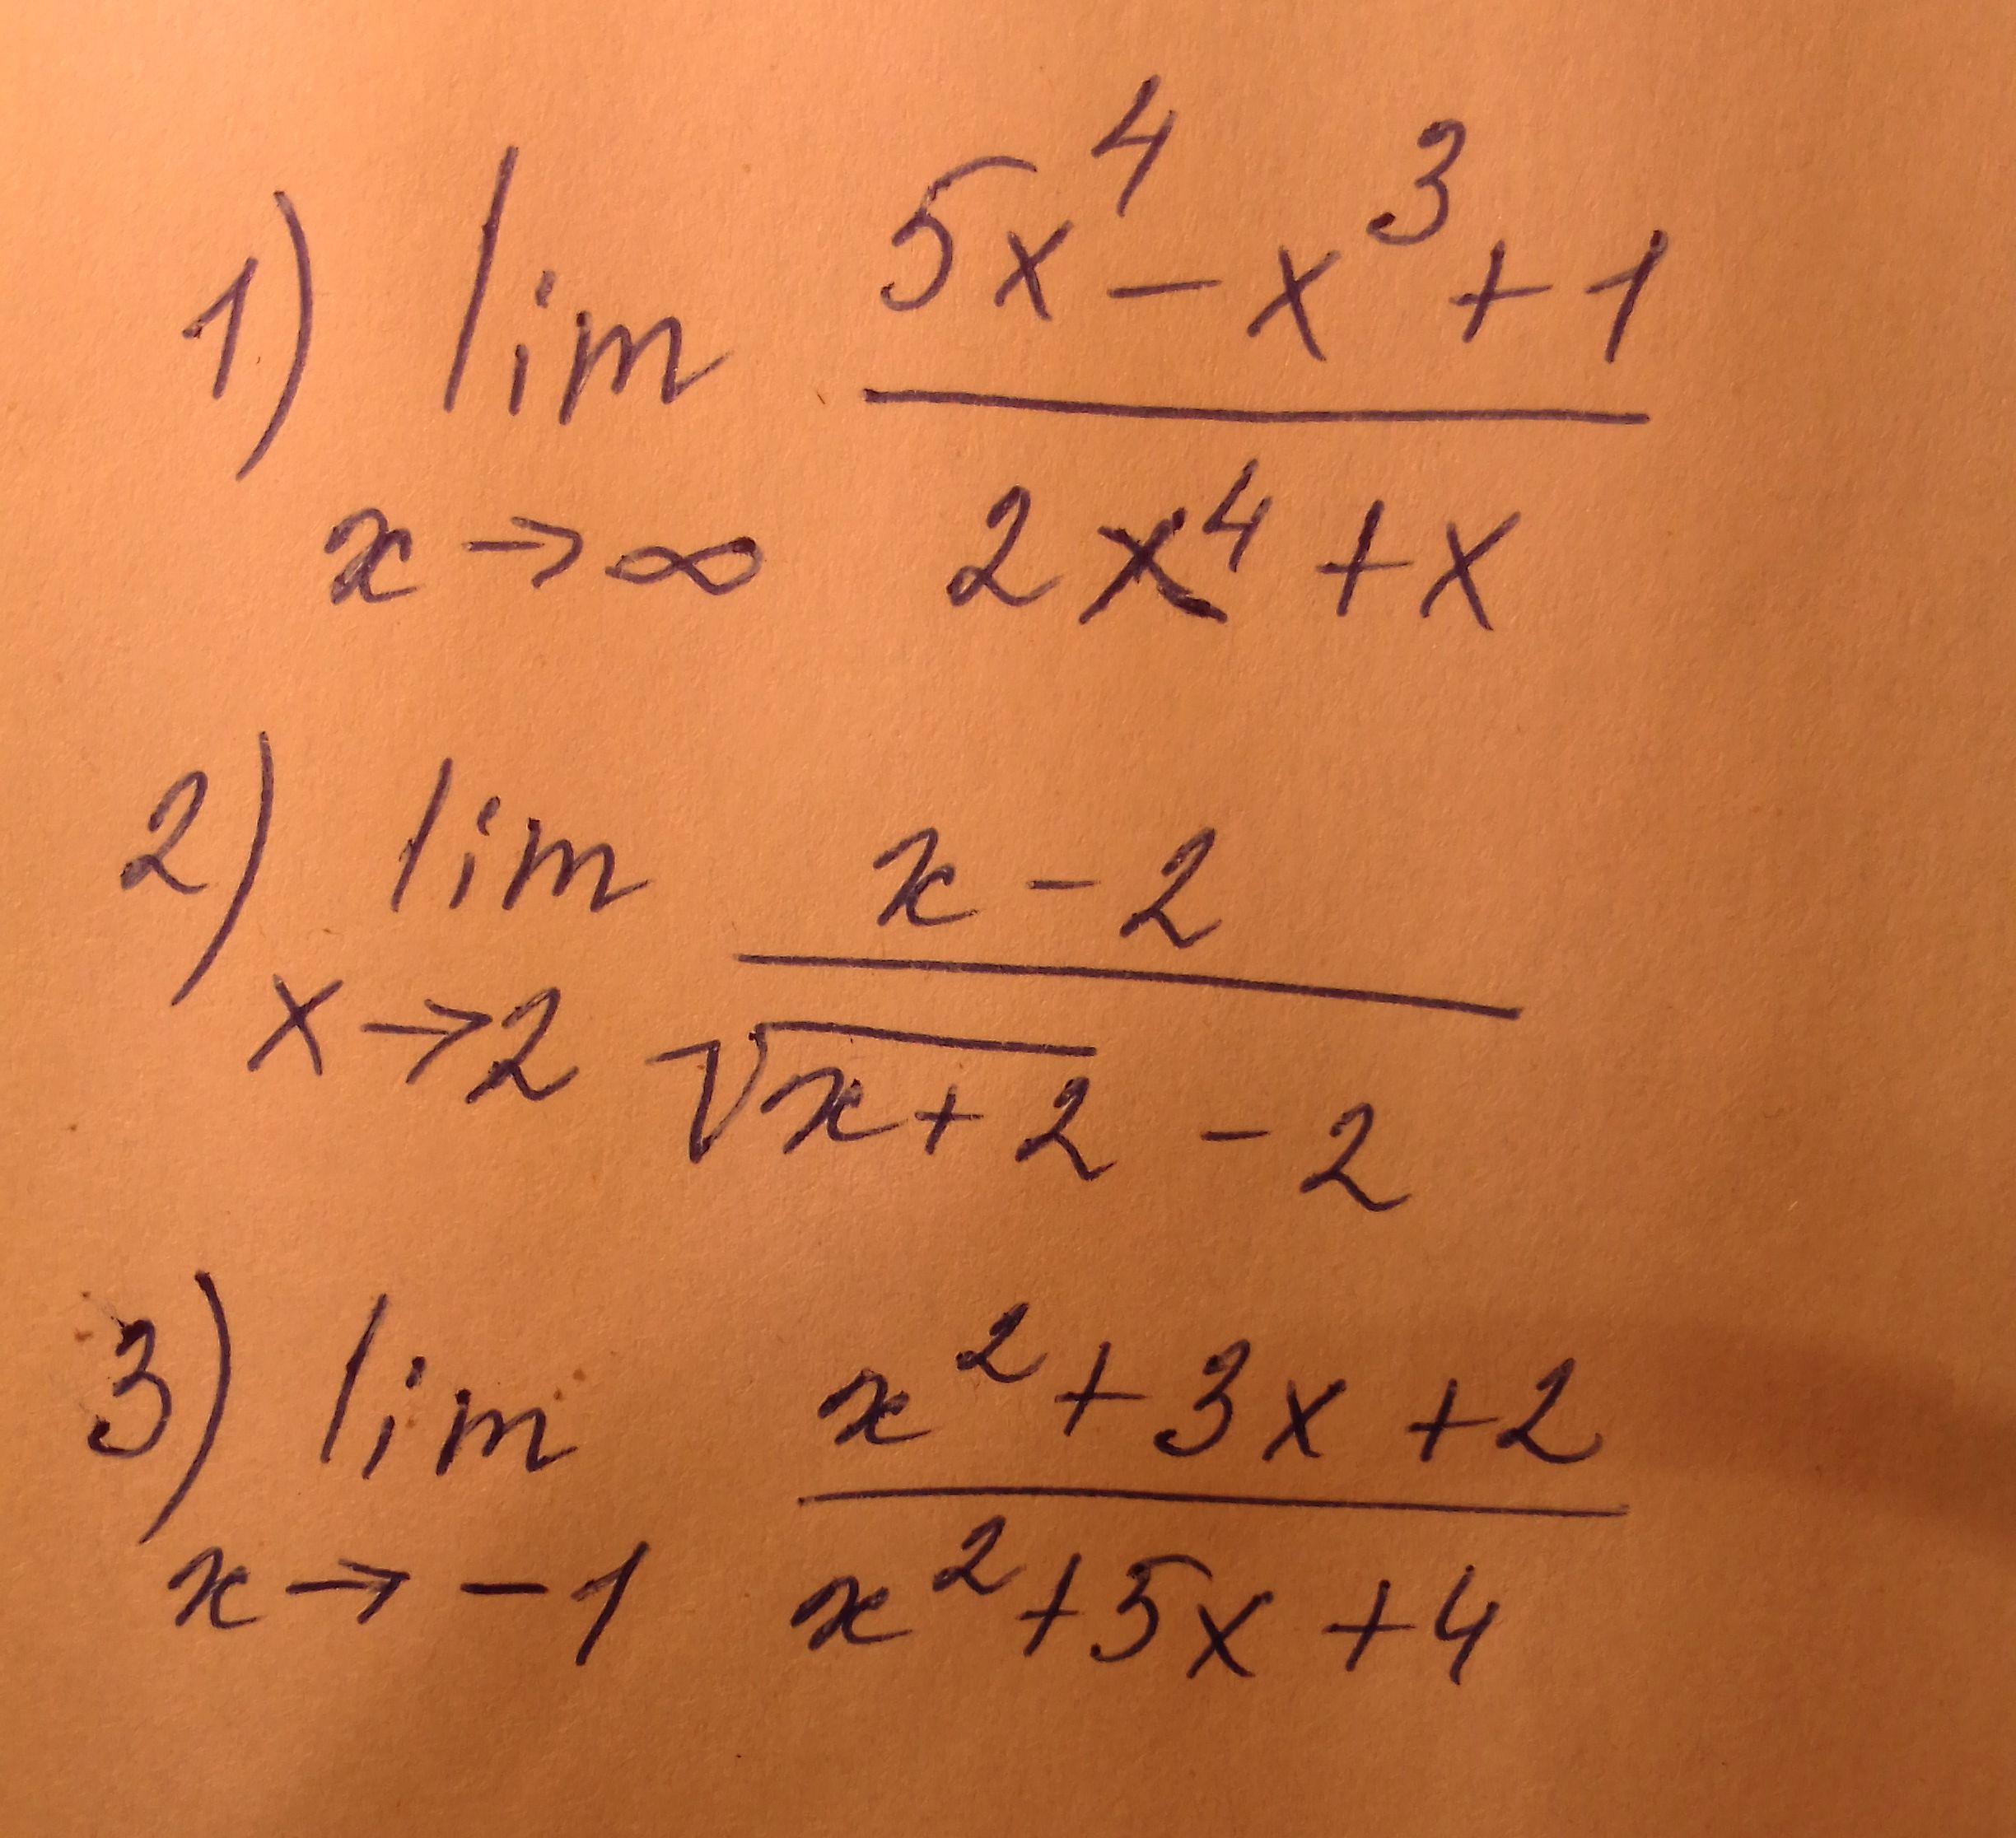 1) lim 5x⁴ - x³ + 1
x → ∞ 2x⁴ + x
2) lim x - 2
x → 2 √x + 2 - 2
3) lim x² + 3x + 2
x → -1 x² + 5x + 4